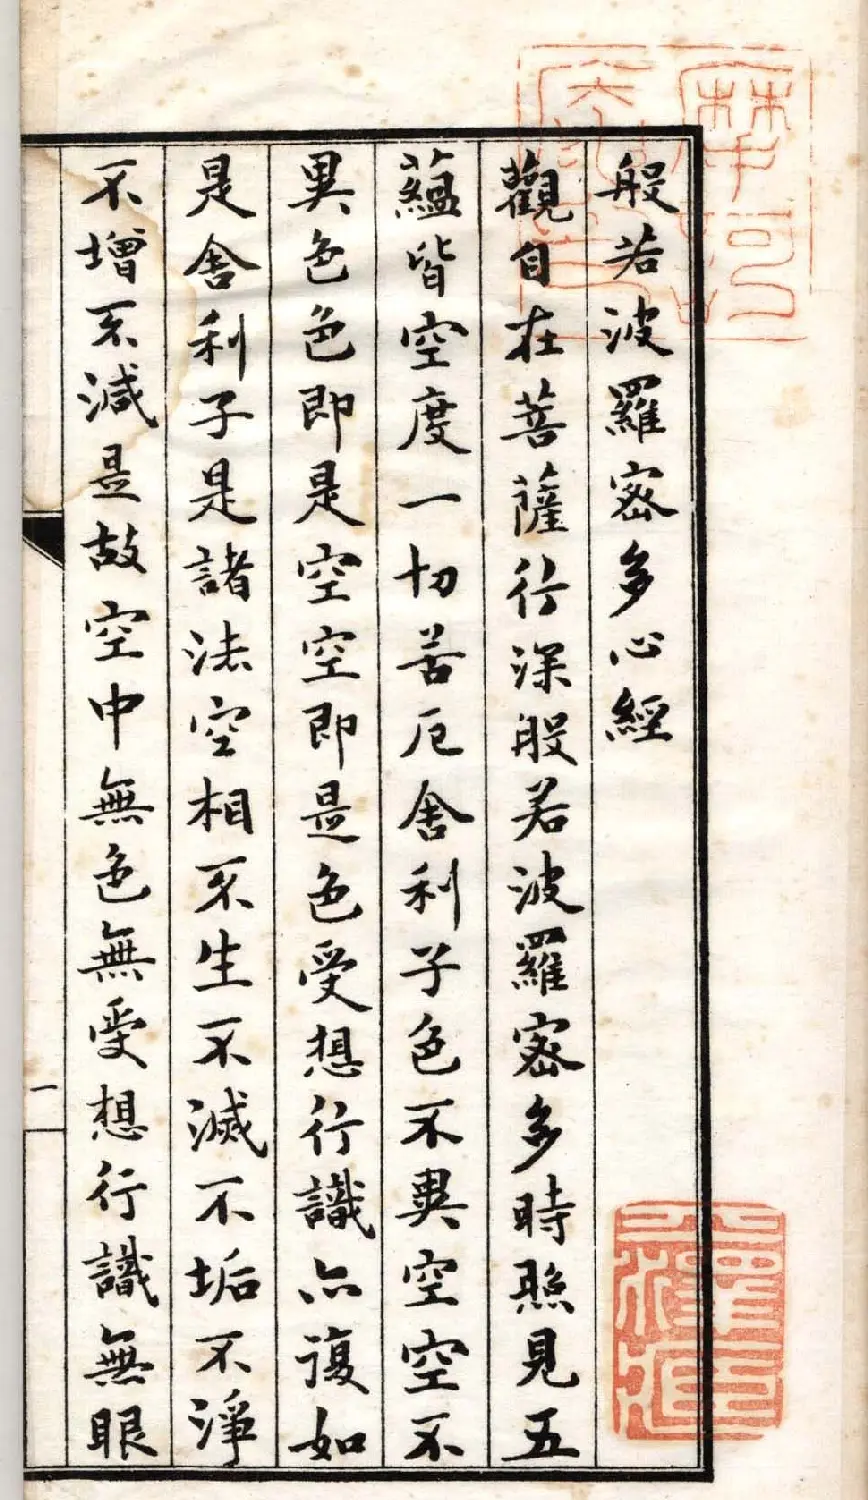 般若波羅蜜多心經
觀自在菩薩行深般若波羅蜜多時照見五
蘊皆空度一切苦厄舍利子色不異空空不
異色色即是空空即是色受想行識亦復如
是舍利子是諸法空相不生不滅不垢不淨
不增不減是故空中無色無受想行識無眼
一